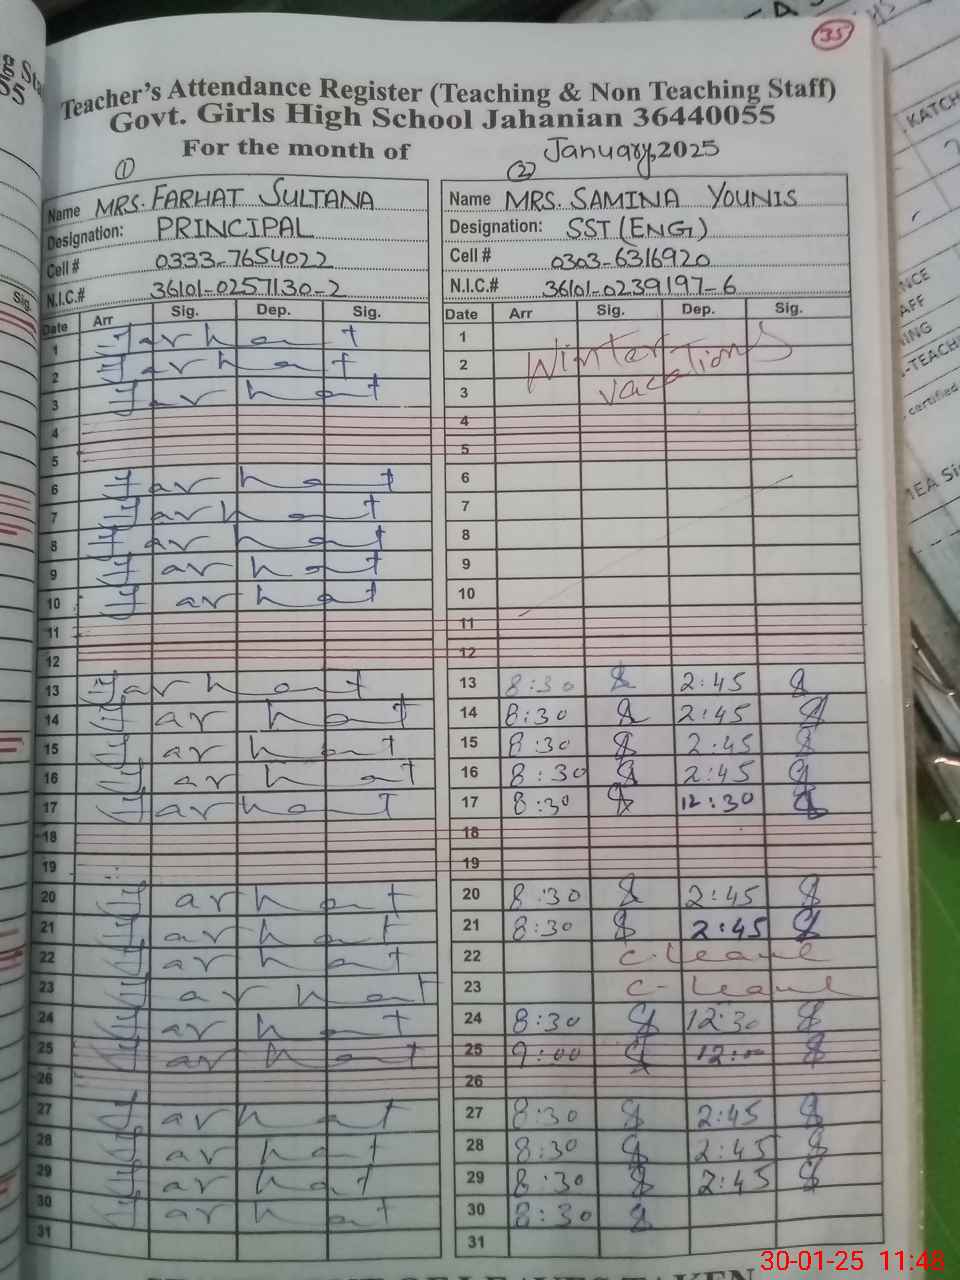 35
Teacher's Attendance Register (Teaching & Non Teaching Staff)
Govt. Girls High School Jahanian 36440055
For the month of January, 2025
① ②
Name MRS. FARHAT SULTANA
Designation: PRINCIPAL
Cell # 0333-7654022
N.I.C.# 36101-0257130-2
Date Arr Sig. Dep. Sig.
1 Farhat
2 Farhat
3 Farhat
4
5
6 Farhat
7 Farhat
8 Farhat
9 Farhat
10 Farhat
11
12
13 Farhat
14 Farhat
15 Farhat
16 Farhat
17 Farhat
18
19
20 Farhat
21 Farhat
22 Farhat
23 Farhat
24 Farhat
25 Farhat
26
27 Farhat
28 Farhat
29 Farhat
30 Farhat
31
Name MRS. SAMINA YOUNIS
Designation: SST (ENG)
Cell # 0303-6316920
N.I.C.# 36101-0239197-6
Date Arr Sig. Dep. Sig.
1 Winter Vacations
2
3
4
5
6
7
8
9
10
11
12
13 8:30 2:45
14 8:30 2:45
15 8:30 2:45
16 8:30 2:45
17 8:30 12:30
18
19
20 8:30 2:45
21 8:30 2:45
22 C. Leave
23 C- Leave
24 8:30 12:30
25 9:00 12:00
26
27 8:30 2:45
28 8:30 2:45
29 8:30 2:45
30 8:30
31
Sig.
KATCH
certified
30-01-25 11:48